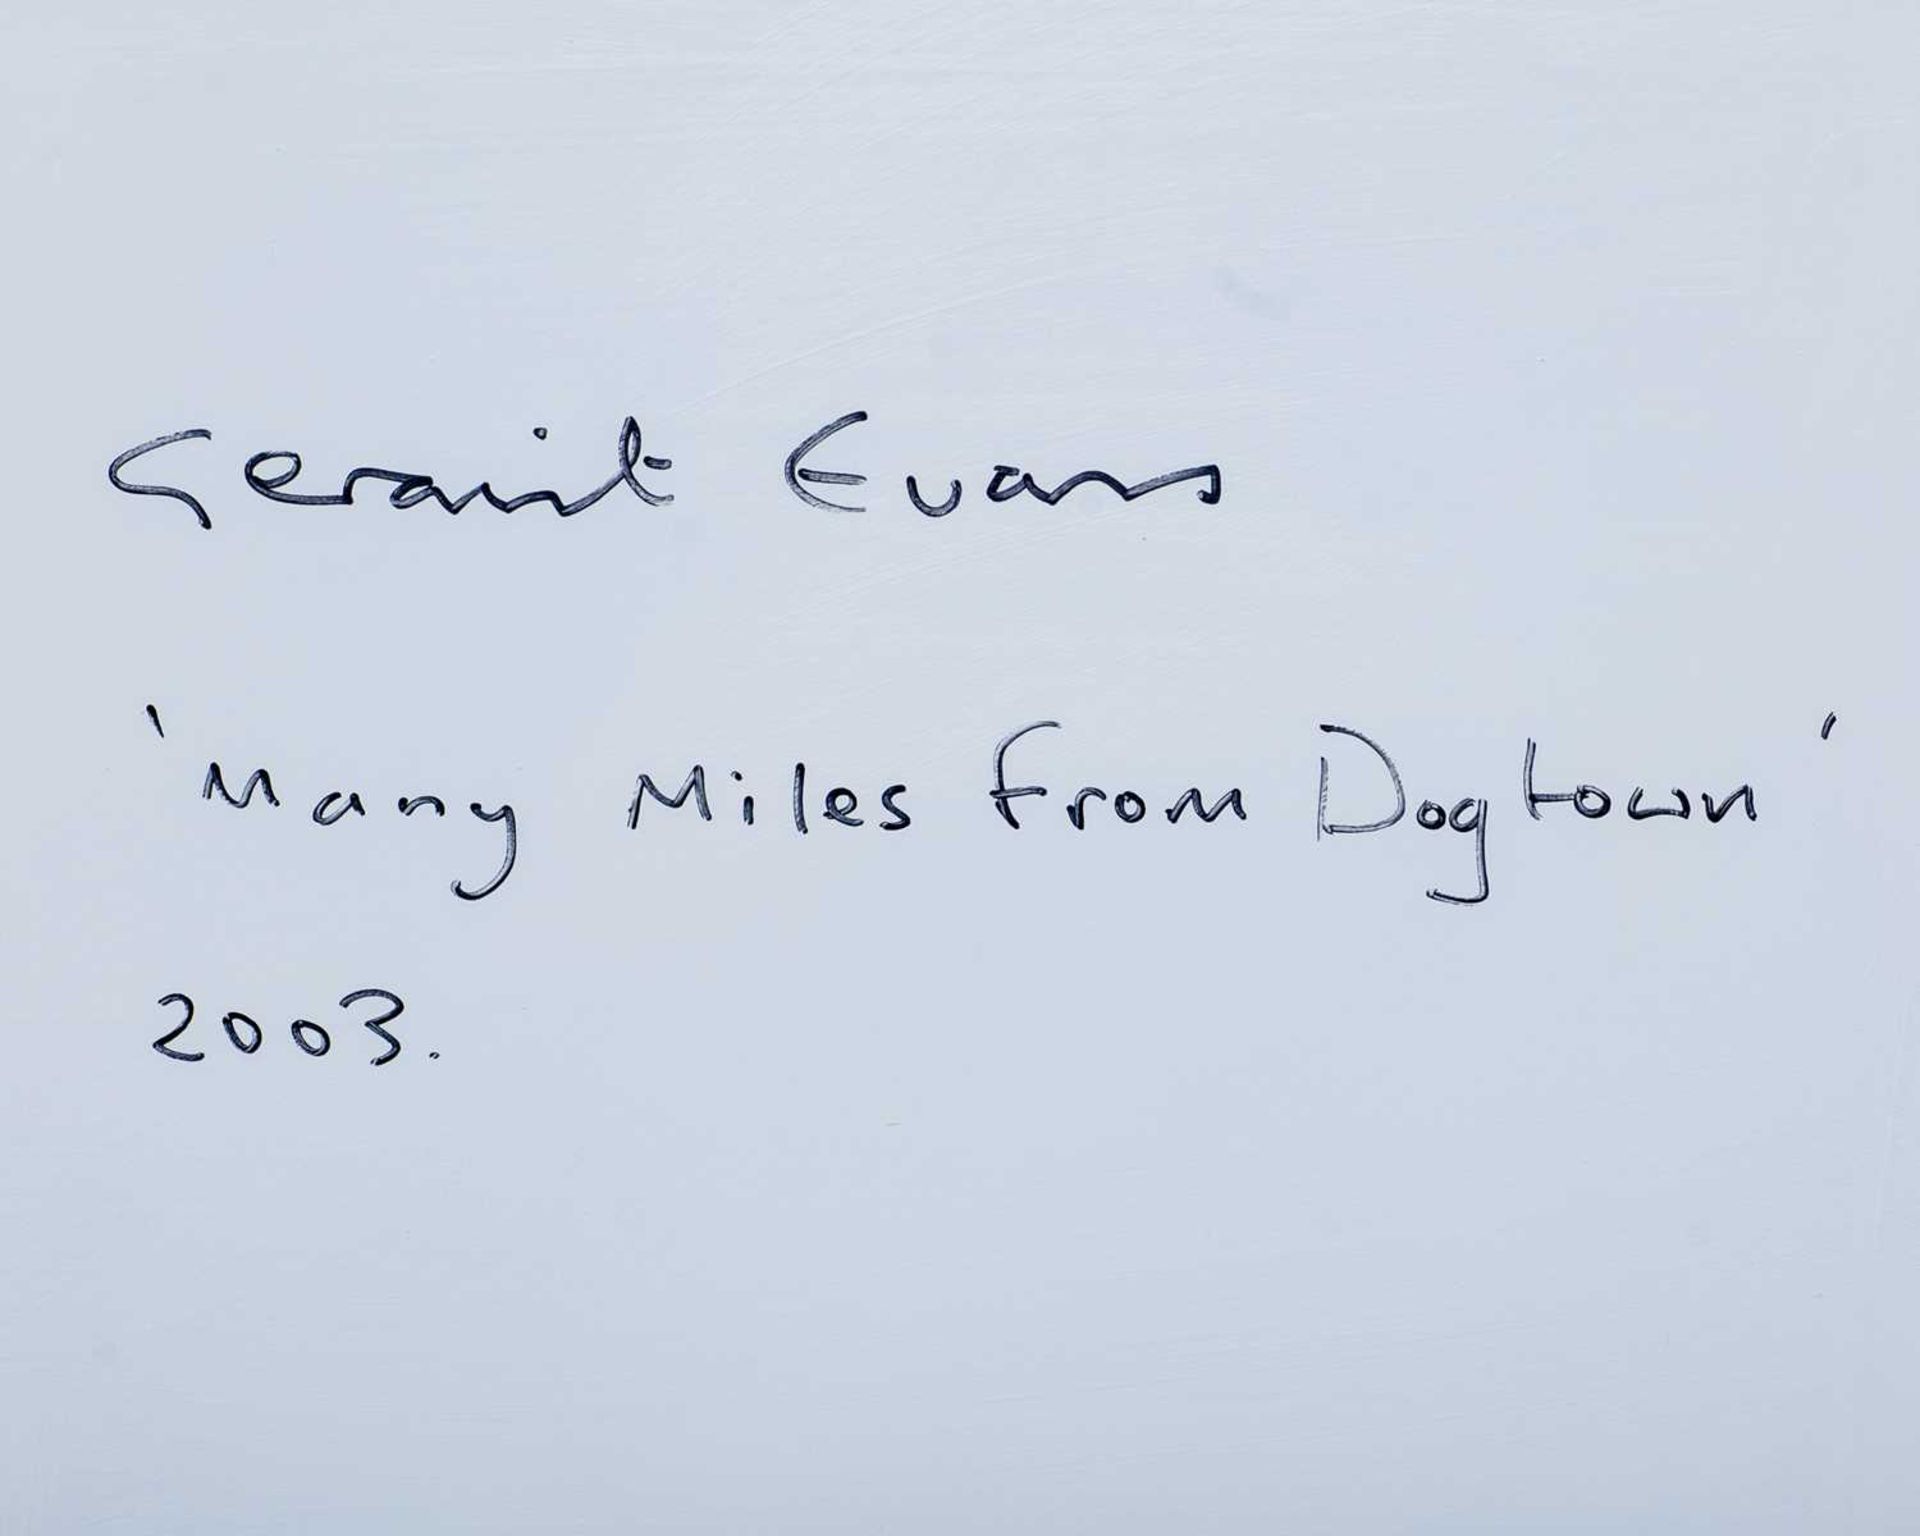 Geraint Evans
'Many Miles From Dogtown'
2003.